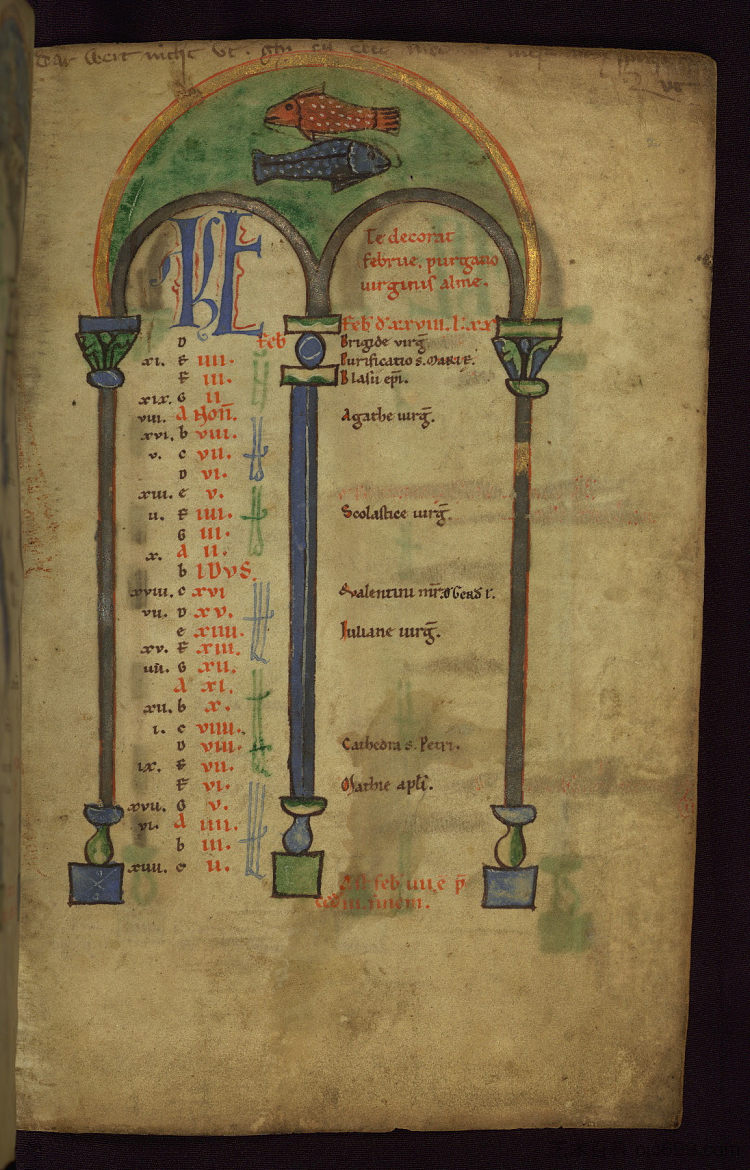 dar weit nicht
KL
Te decorat
februe. purgatio
virginis alme.
feb
Feb' d' xxviii. l'. xx
D Brigide virg̅
xi. E iiii. Purificatio s. MARIE.
F iii. Blasii ep̅i.
xix. G ii
viii. A Non̅. Agathe uirg̅.
xvi. b viii.
v. c vii.
D vi.
xiii. e v.
ii. F iiii. Scolastice uirg̅.
G iii.
x. A ii.
b IDVS.
xviii. c xvi Valentini mr̅.
vii. D xv.
e xiiii. Iuliane uirg̅.
xv. F xiii.
iiii. G xii.
A xi.
xii. b x.
i. c viiii.
D viii. Cathedra s. Petri.
ix. E vii.
F vi. Mathie apl̅i.
xvii. G v.
vi. A iiii.
b iii.
xiiii. c ii.
feb
finem.